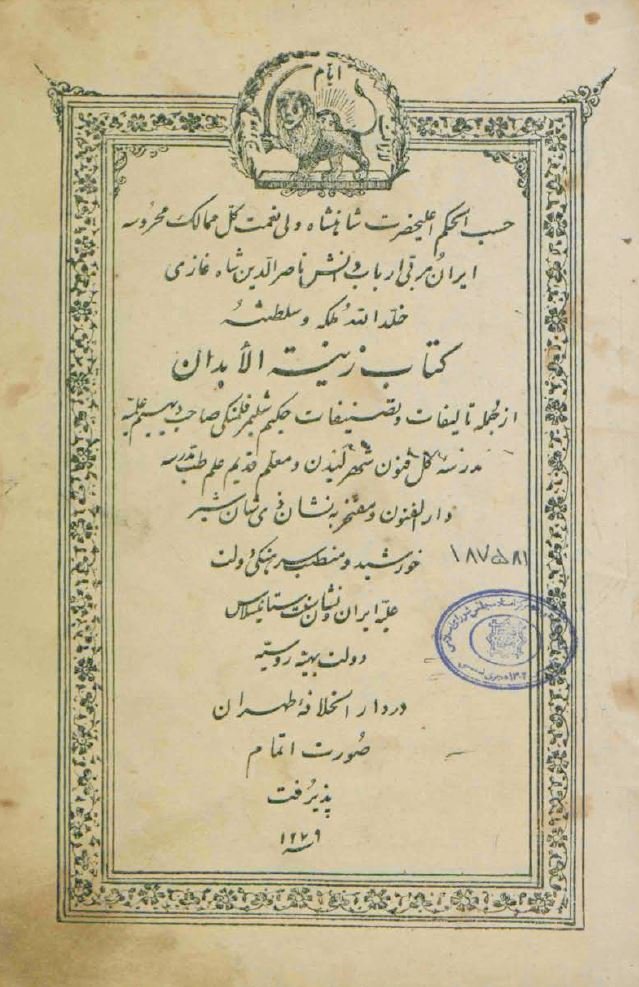 ایام
حسب الحکم اعلیحضرت شاهنشاه ولی نعمت کل ممالک محروسه
ایران مربی ارباب دانش ناصر الدین شاه غازی
خلد الله ملکه و سلطنته
کتاب زینة الأبدان
از جمله تالیفات و تصنیفات حکیم شلیمر فلمنکی صاحب دیپلم علیه
مدرسه کل فنون شهر لیدن و معلم قدیم علم طب مدرسه
دار الفنون و مفتخر به نشان ذی شان شیر
خورشید و منصب سرهنکی دولت
۱۸۷۵۸۱
علیه ایران و نشان سنت ستانیسلاس
دولت بهیه روسیه
در دار الخلافه طهران
صورت اتمام
پذیرفت
۱۲۷۹